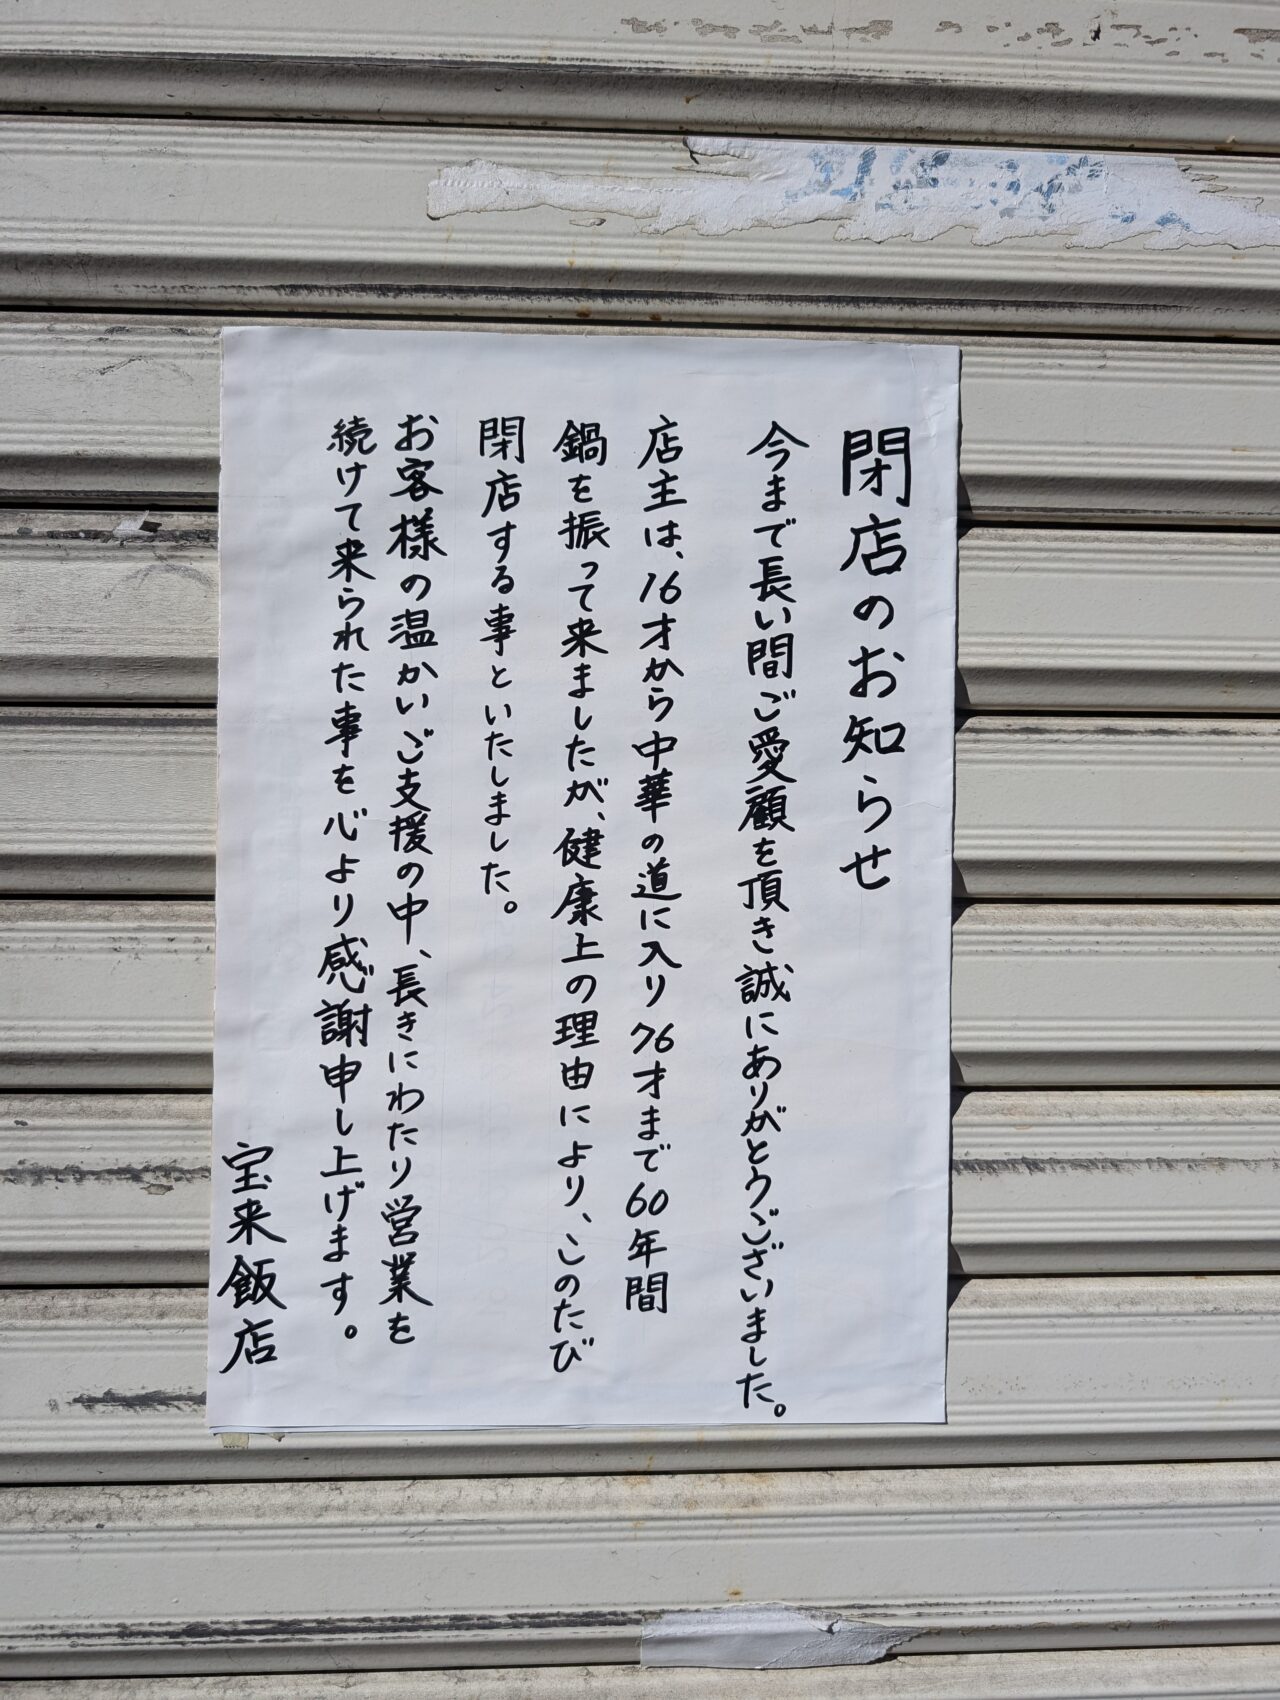 閉店のお知らせ
今まで長い間ご愛顧を頂き誠にありがとうございました。
店主は、16才から中華の道に入り76才まで60年間
鍋を振って来ましたが、健康上の理由により、このたび
閉店する事といたしました。
お客様の温かいご支援の中、長きにわたり営業を
続けて来られた事を心より感謝申し上げます。
宝来飯店